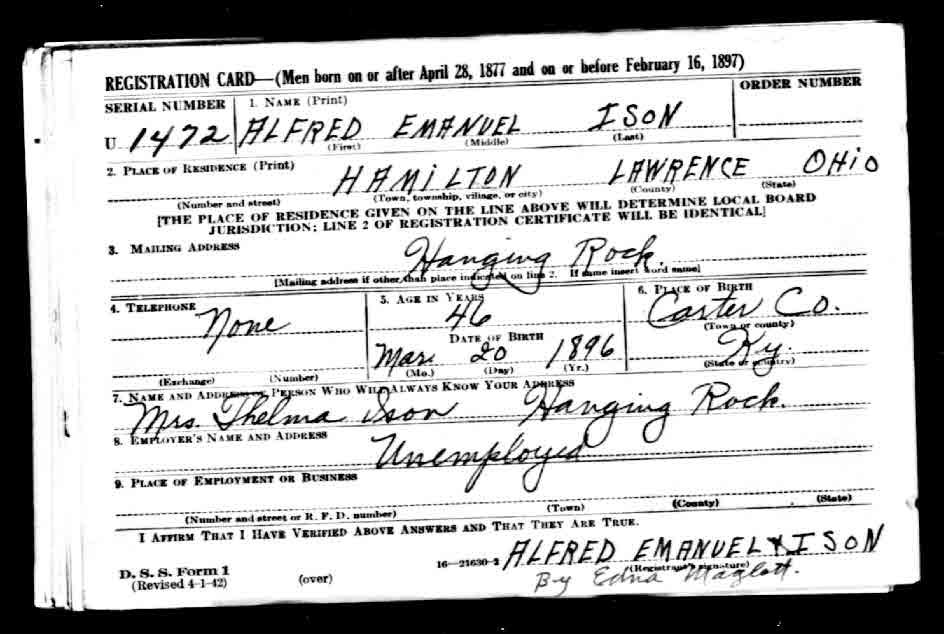 REGISTRATION CARD—(Men born on or after April 28, 1877 and on or before February 16, 1897)
SERIAL NUMBER 1. NAME (Print) ORDER NUMBER
U 1472 ALFRED EMANUEL ISON
(First) (Middle) (Last)
2. PLACE OF RESIDENCE (Print)
HAMILTON LAWRENCE OHiO
(Number and street) (Town, township, village, or city) (County) (State)
[THE PLACE OF RESIDENCE GIVEN ON THE LINE ABOVE WILL DETERMINE LOCAL BOARD
JURISDICTION; LINE 2 OF REGISTRATION CERTIFICATE WILL BE IDENTICAL]
3. MAILING ADDRESS
Hanging Rock.
[Mailing address if other than place indicated on line 2. If same insert word same]
4. TELEPHONE 5. AGE IN YEARS 6. PLACE OF BIRTH
None 46 Carter Co.
(Town or county)
DATE OF BIRTH
Mar. 20 1896 Ky.
(Exchange) (Number) (Mo.) (Day) (Yr.) (State or country)
7. NAME AND ADDRESS OF PERSON WHO WILL ALWAYS KNOW YOUR ADDRESS
Mrs. Thelma Ison Hanging Rock.
8. EMPLOYER'S NAME AND ADDRESS
Unemployed
9. PLACE OF EMPLOYMENT OR BUSINESS
(Number and street or R. F. D. number) (Town) (County) (State)
I AFFIRM THAT I HAVE VERIFIED ABOVE ANSWERS AND THAT THEY ARE TRUE.
D. S. S. Form 1 16—21630-2 ALFRED EMANUEL X ISON
(Revised 4-1-42) (over) (Registrant's signature)
By Edna Maglott.